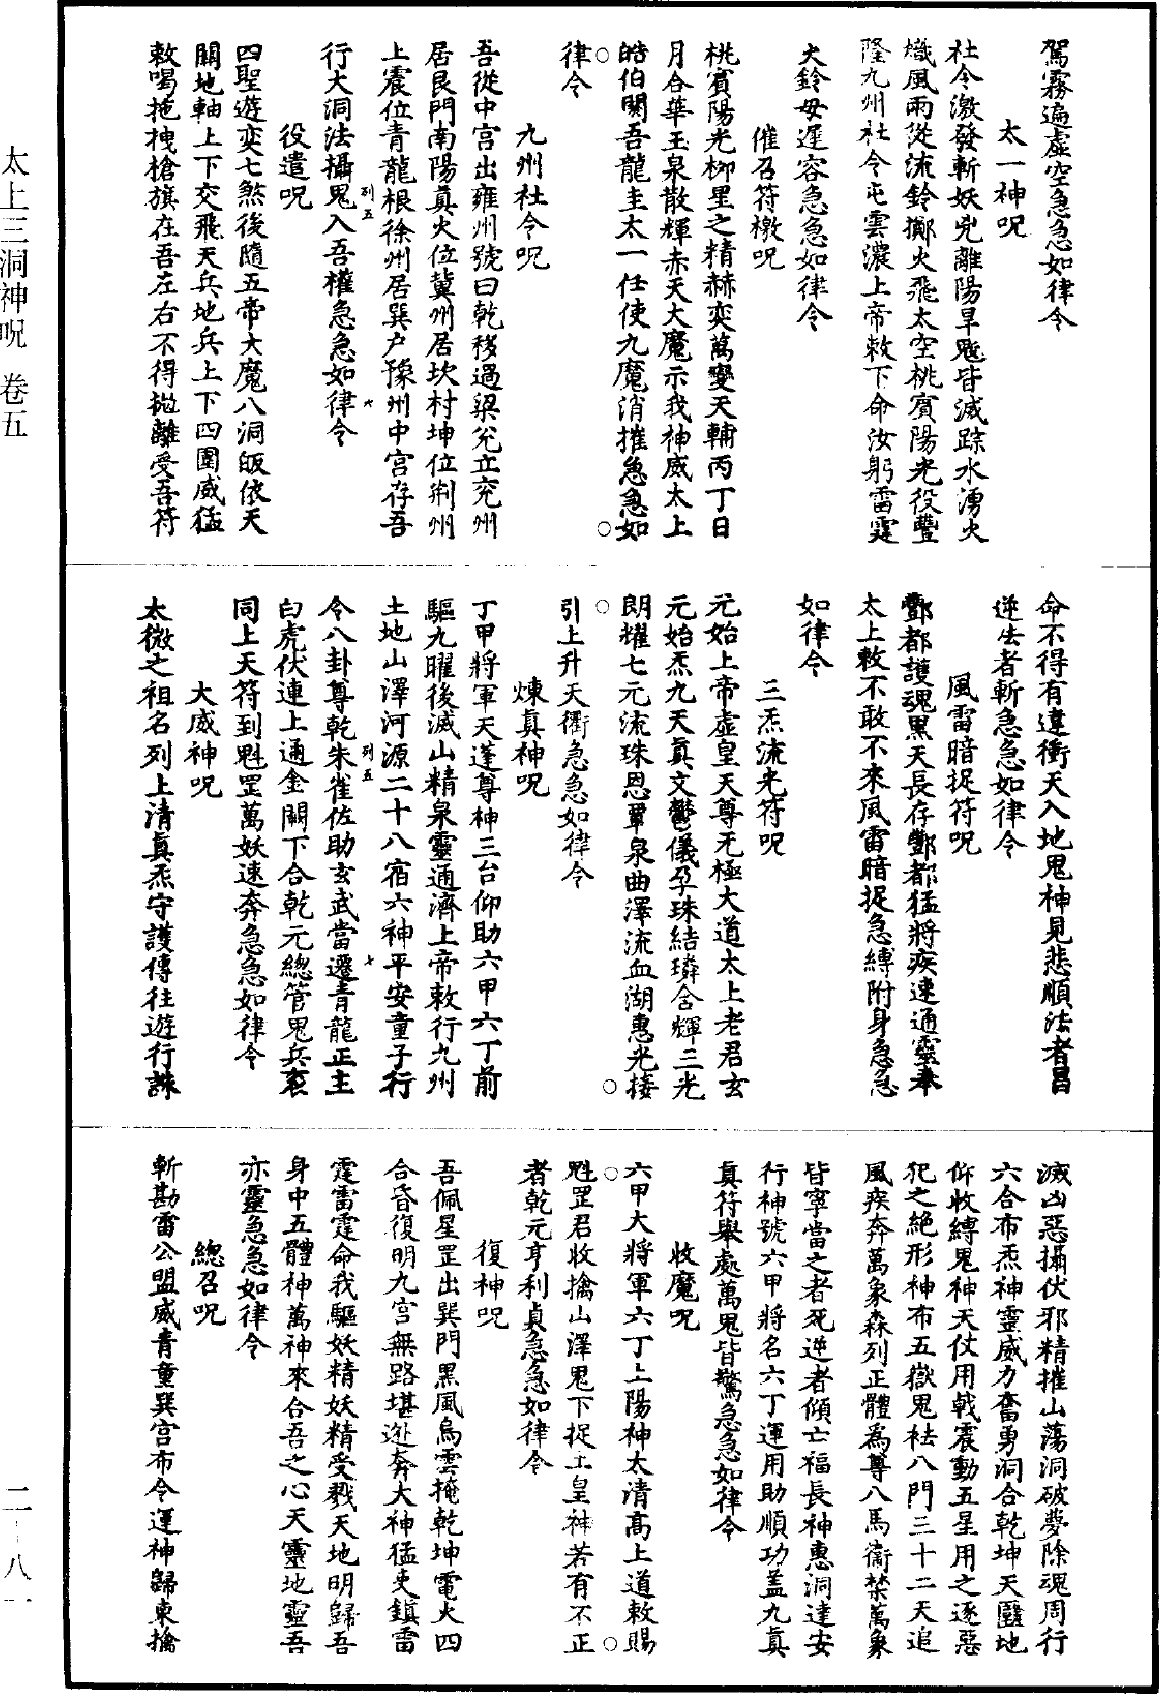 駕霧遍虛空急急如律令
太一神呪
社令激發斬妖兇離陽旱魃皆滅踪水湧火
熾風雨從流鈴擲火飛太空桃賓陽光役豐
隆九州社令屯雲濃上帝敕下命汝躬雷霆
火鈴毋遲容急急如律令
催召符檄呪
桃賓陽光柳星之精赫奕萬變天輔丙丁日
月合華玉泉散輝赤天大魔示我神威太上
皓伯関吾龍圭太一任使九魔消摧急急如
律令
九州社令呪
吾從中宮出雍州號曰乾移過梁兌立兗州
居艮門南陽真火位冀州居坎村坤位荆州
上震位青龍根徐州居巽户豫州中宮存吾
行大洞法攝鬼入吾權急急如律令
役遣呪
四聖遊奕七煞後隨五帝大魔八洞皈依天
關地軸上下交飛天兵地兵上下四圍威猛
敕喝拖拽槍旗在吾左右不得拋離受吾符
命不得有違衝天入地鬼神見悲順法者昌
逆法者斬急急如律令
風雷暗捉符呪
酆都護魂黑天長存酆都猛將疾速通靈奉
太上敕不敢不來風雷暗捉急縛附身急急
如律令
三炁流光符呪
元始上帝虛皇天尊无極大道太上老君玄
元始炁九天真文鬱儀孕珠結璘含輝三光
朗耀七元流珠恩覃泉曲澤流血湖惠光接
引上升天衢急急如律令
煉真神呪
丁甲將軍天蓬尊神三台仰助六甲六丁前
驅九曜後滅山精泉靈通濟上帝敕行九州
土地山澤河源二十八宿六神平安童子行
令八卦尊乾朱雀佐助玄武當遷青龍正主
白虎伏連上通金闕下合乾元總管鬼兵衮
同上天符到魁罡萬妖速奔急急如律令
大威神呪
太微之祖名列上清真炁守護傳往遊行誅
滅凶惡攝伏邪精摧山蕩洞破夢除魂周行
六合布炁神靈威力奮勇洞合乾坤天䨱地
仰收縛鬼神天仗用戟震動五星用之逐惡
犯之絶形神布五嶽鬼祛八門三十二天追
風疾奔萬象森列正體為尊八馬衞禁萬象
皆寧當之者死逆者傾亡福長神惠洞達安
行神號六甲將名六丁運用助順功盖九真
真符舉處萬鬼皆驚急急如律令
收魔呪
六甲大將軍六丁上陽神太清高上道敕賜
魁罡君收擒山澤鬼下捉土皇神若有不正
者乾元亨利貞急急如律令
復神呪
吾佩星罡出巽門黑風烏雲掩乾坤電火四
合昏復明九宮無路堪逃奔大神猛吏鎮雷
霆雷霆命我驅妖精妖精受戮天地明歸吾
身中五體神萬神來合吾之心天靈地靈吾
亦靈急急如律令
總召呪
斬勘雷公盟威青童巽宮布令運神歸東擒
列五
六
列五
七
太上三洞神呪 卷五
二-八一